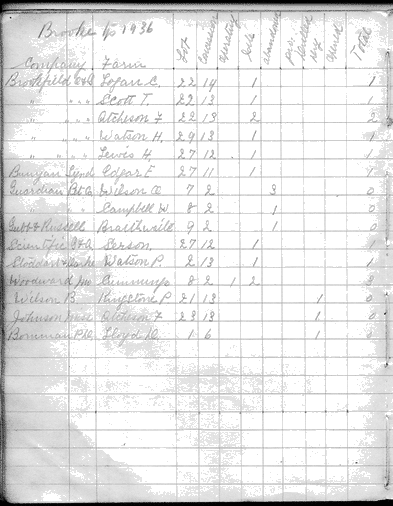 Brooke Tp 1936
Company Farm Lot Concession Operating Idle Abandoned Drilled Dry Total
Brookfield O&G Logan C. 22 14 1 1
" " " Scott T. 22 13 1 1
" " " Atcheson F 22 13 2 2
" " " Watson H. 29 13 1 1
" " " Lewis H. 27 12 1 1
Bunyan Synd Edgar E 27 11 1 1
Guardian Wilson 7 2 3 0
" " Campbell W 8 2 1 0
Gubb & Russell Braithwaite 9 2 1 0
Scientific Serson 27 12 1 1
Stoddart & Watson P. 2 13 1 1
Woodward Cummings 8 2 1 2 3
Wilson B. Kingstone P 21 13 1 0
Johnson Atcheson F 23 18 1 0
Bowman Lloyd 1 6 1 0